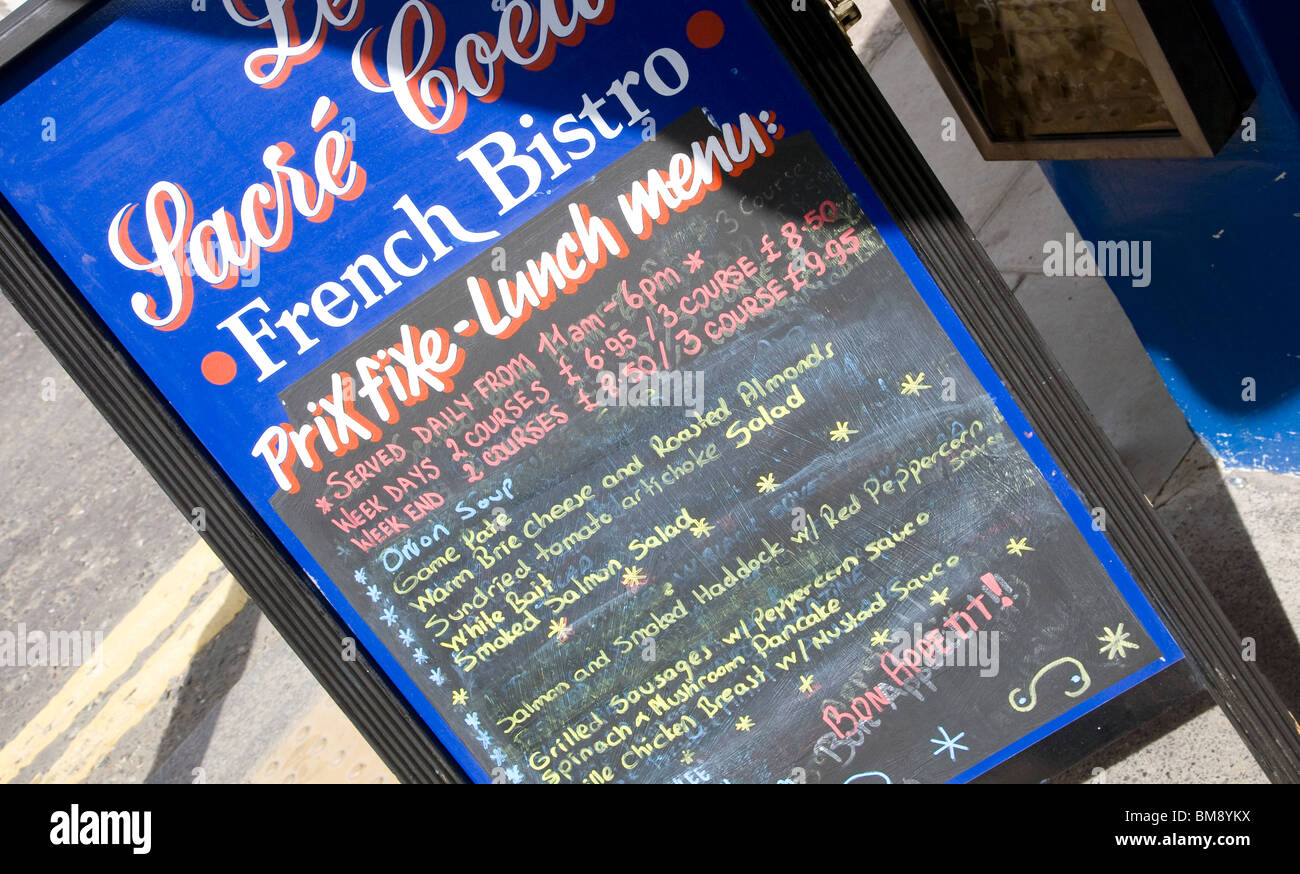 Le
Sacré Coeu
French Bistro
Prix fixe - Lunch menu:
3 Course
* SERVED DAILY FROM 11am - 6pm *
WEEK DAYS 2 COURSES £6.95 / 3 COURSE £8.50
WEEK END 2 COURSES £8.50 / 3 COURSE £9.95
Onion Soup
Game Pate
Warm Brie Cheese and Roasted Almonds
Sundried tomato artichoke Salad
White Bait
Smoked Salmon Salad
Salmon and Smoked Haddock w/ Red Peppercorn
sauce
Grilled Sausages w/ Peppercorn sauce
Spinach & Mushroom Pancake
lle Chicken Breast w/ Mustad Sauce
BON APPETIT!!
alamy
Image ID: BM8YKX
www.alamy.com